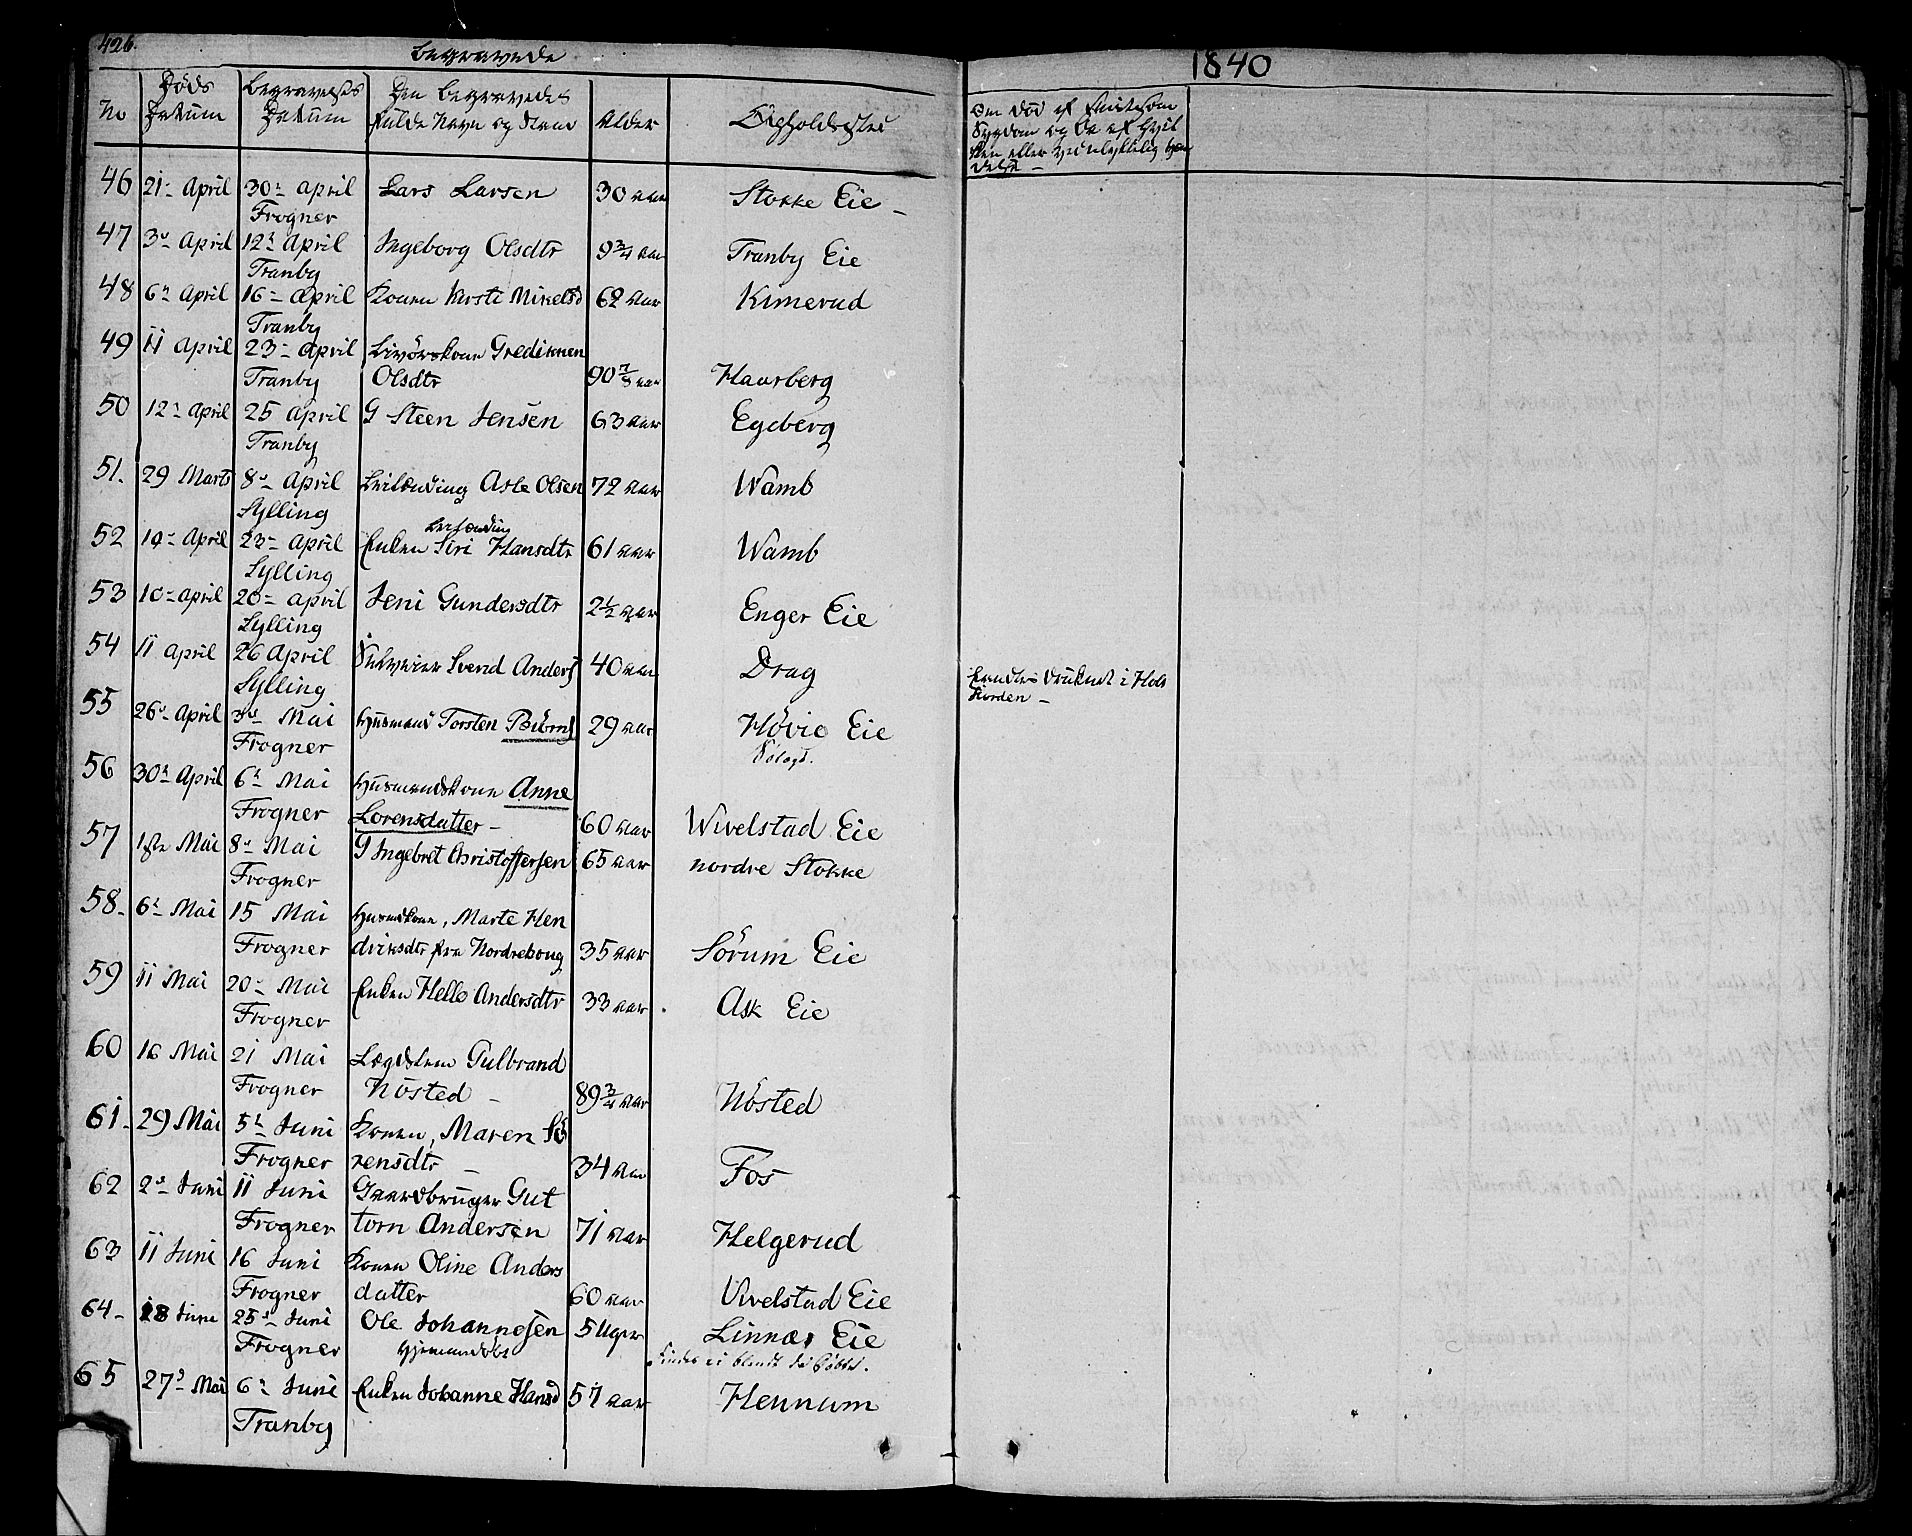 426.
Begravede
1840
No
Døds Datum
Begravelses Datum
Den Begravedes fulde Navn og Stand
Alder
Opholdssted
Om død af smitsom
Sygdom og da af hvil
ken eller ved ulykkelig hæn
delse –
46 21– April 30– April Lars Larsen 30 aar Stokke Eie –
Frogner
47 3– April 12– April Ingeborg Olsdtr 9 3/4 aar Tranby Eie
Tranby
48 6– April 16– April Konen Kirsti Mikelsd 62 aar Kimerud
Tranby
49 11 April 23– April Livørskone Gredikken
Tranby Olsdtr 90 7/8 aar Haurberg
50 12– April 25 April G Steen Jensen 63 aar Egeberg
Tranby
51. 29 Marts 8– April Leilænding Asle Olsen 72 aar Wamb
Sylling
Leilænding
52 14– April 23– April Enken Siri Hansdtr 61 aar Wamb
Sylling
53 10– April 20– April Jeni Gundersdtr 2 1/2 aar Enger Eie
Sylling
54 11 April 26 April Svend Anders 40 aar Drag fandtes druknet i Hols
Sylling fiorden –
55 26– April 3– Mai Husmand Torsten Biörns 29 aar Høvig Eie
Frogner
56 30– April 6– Mai Husmandskone Anne
Frogner Lorensdatter – 60 aar Wivelstad Eie
57 1ste Mai 8– Mai G Ingebret Christoffersen 65 aar nordre Stokke
Frogner
58– 6– Mai 15 Mai Husmdkone, Marte Hen
Frogner driksdtr fra Nordrehoug 35 aar Sörum Eie
59 11 Mai 20– Mai Enken Helle Andersdtr 33 aar Ask Eie
Frogner
60 16 Mai 21 Mai Lægdslem Gulbrand
Frogner Nösted – 89 3/4 aar Nösted
61– 29 Mai 5– Juni Konen, Maren Sö
Frogner rensdtr – 34 aar Fos
62 2– Juni 11 Juni Gaardbruger Gut
Frogner torn Andersen 71 aar Helgerud
63 11 Juni 16 Juni Konen Oline Anders
Frogner datter 60 aar Vivelstad Eie
64– 18 Juni 25– Juni Ole Johannesen 5 Uger Linnæs Eie
Frogner Hjemmedöbt findes ei blandt de Döbte.
65 27– Mai 6– Juni Enken Johanne Hansd 57 aar Hennum
Tranby